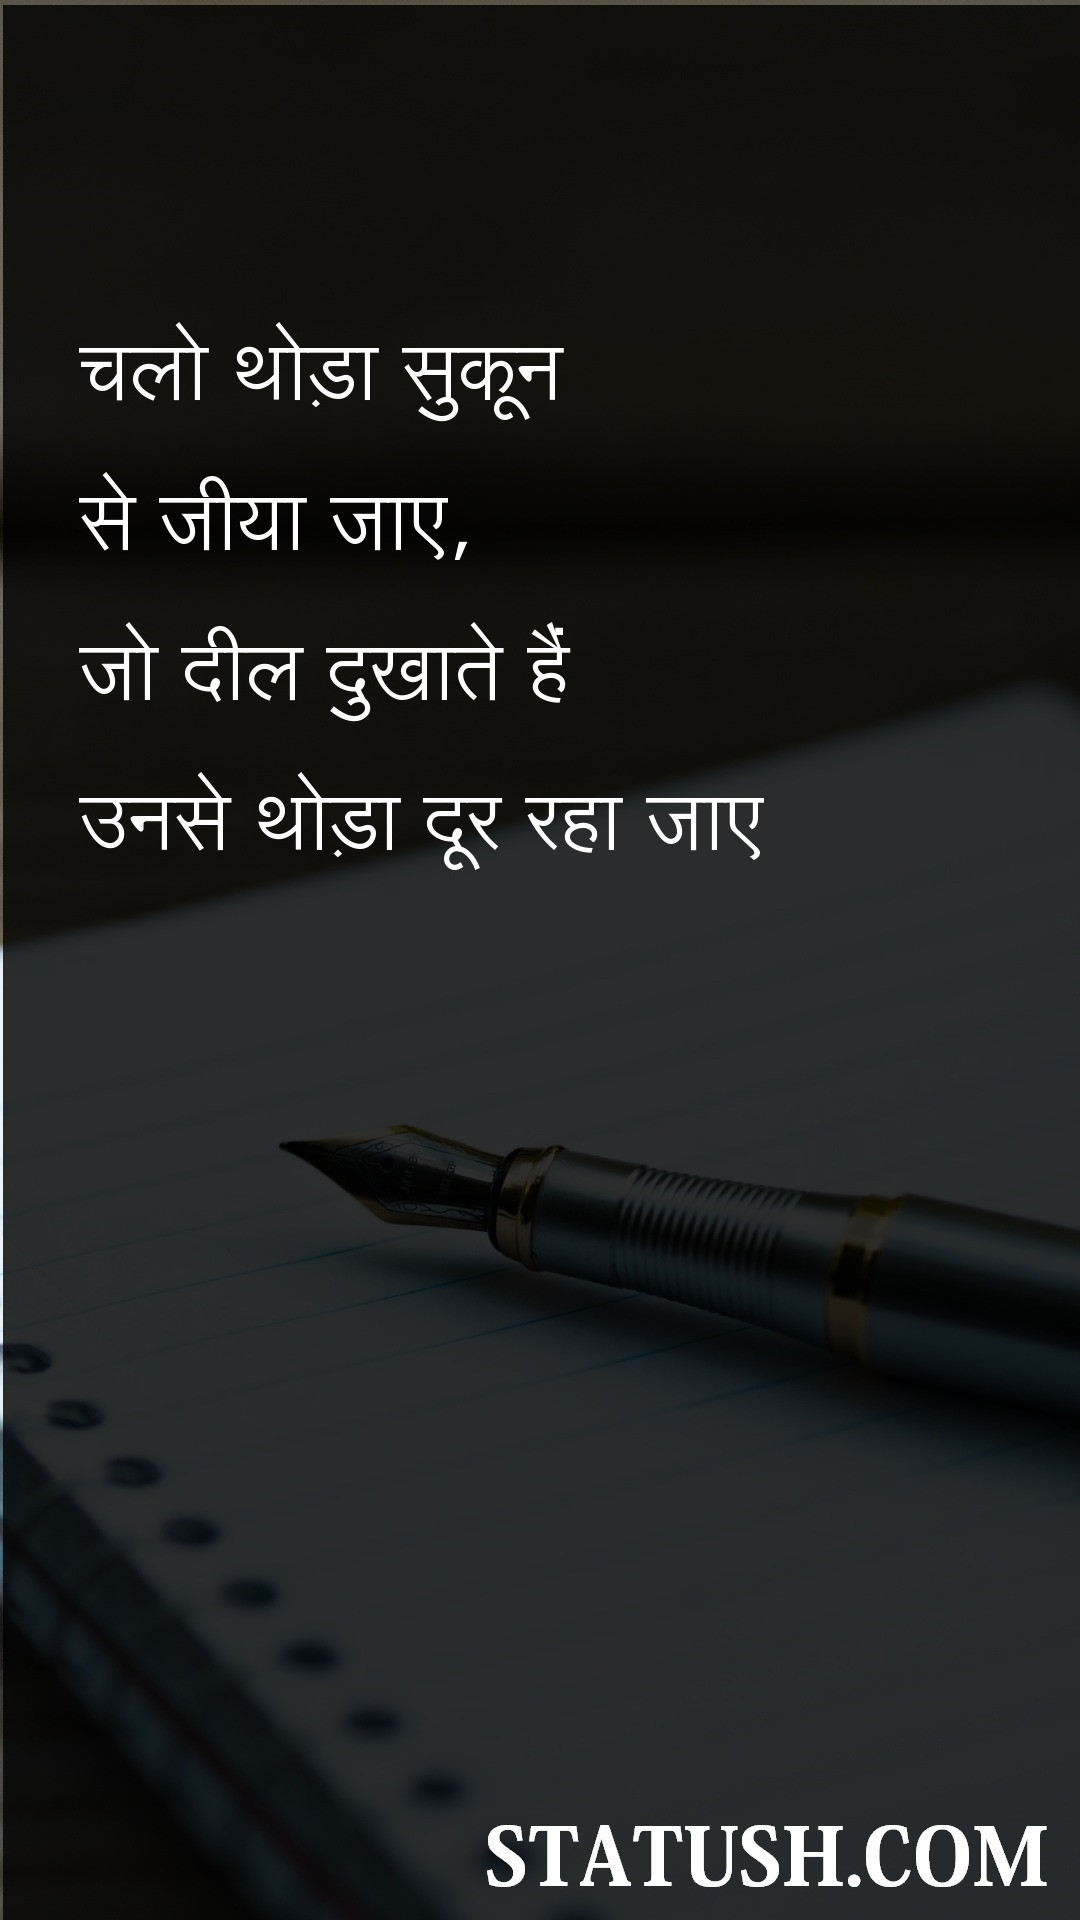 चलो थोड़ा सुकून
से जीया जाए,
जो दील दुखाते हैं
उनसे थोड़ा दूर रहा जाए
STATUSH.COM